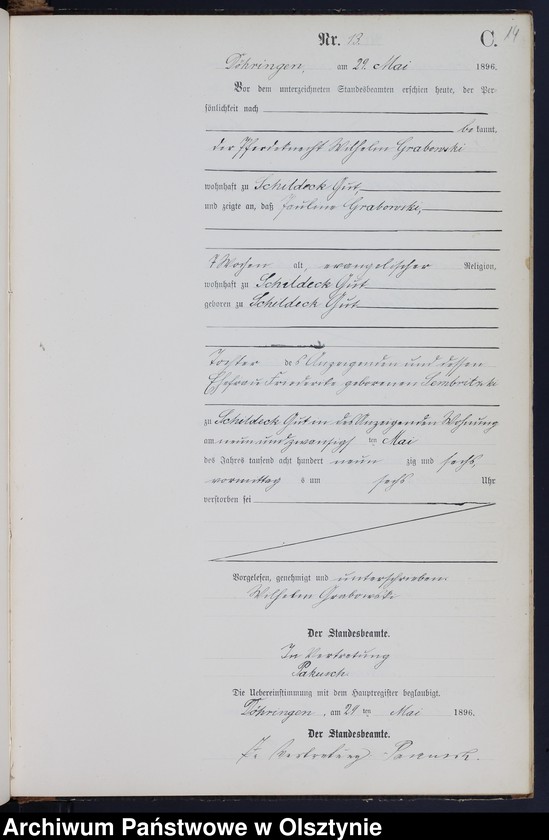 Nr. 13. C. 14
Döhringen, am 29. Mai 1896.
Vor dem unterzeichneten Standesbeamten erschien heute, der Per-
sönlichkeit nach
be kannt,
der Pferdeknecht Wilhelm Grabowski
wohnhaft zu Schildeck Gut,
und zeigte an, daß Pauline Grabowski,
7 Wochen alt, evangelischer Religion,
wohnhaft zu Schildeck Gut
geboren zu Schildeck Gut
Tochter des Anzeigenden und dessen
Ehefrau Friederike geborenen
zu Schildeck Gut in des Anzeigenden Wohnung
am neun und zwanzigsten Mai
des Jahres tausend acht hundert neun zig und sechs,
vormittag s um sechs Uhr
verstorben sei
Vorgelesen, genehmigt und unterschrieben
Wilhelm Grabowski
Der Standesbeamte.
In Vertretung
Die Uebereinstimmung mit dem Hauptregister beglaubigt.
Döhringen, am 29 ten Mai 1896.
Der Standesbeamte.
In Vertretung
Archiwum Państwowe w Olsztynie